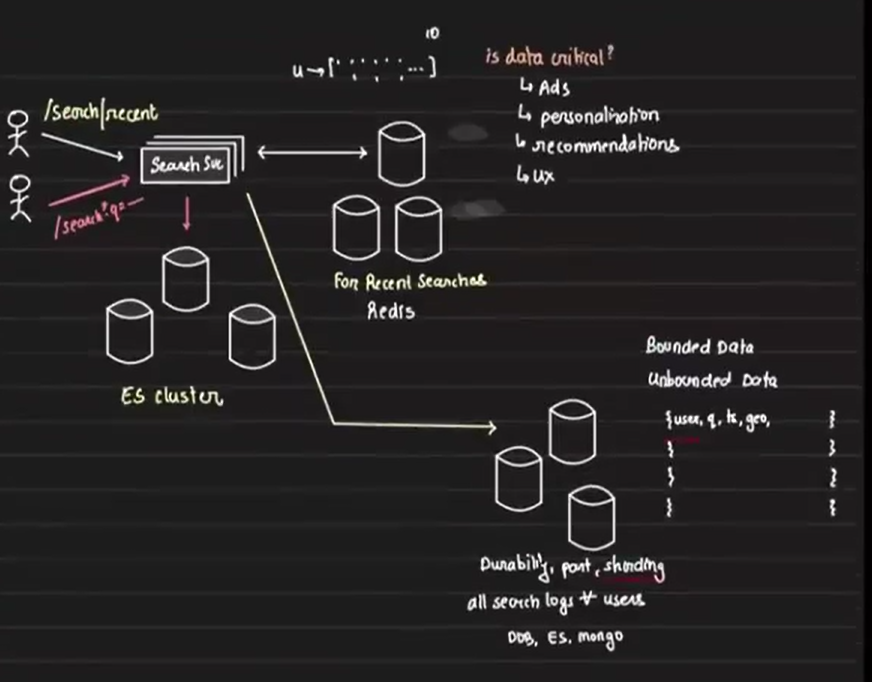 10
u→[ ... ]
is data critical?
↳ Ads
↳ personalization
↳ recommendations
↳ UX
/search/recent
Search Svc
/search?q=—
For Recent Searches
Redis
ES cluster
Bounded Data
Unbounded Data
{user, q, ts, geo, }
{ }
{ }
{ }
Durability, part, sharding
all search logs ∀ users
DDB, ES, mongo